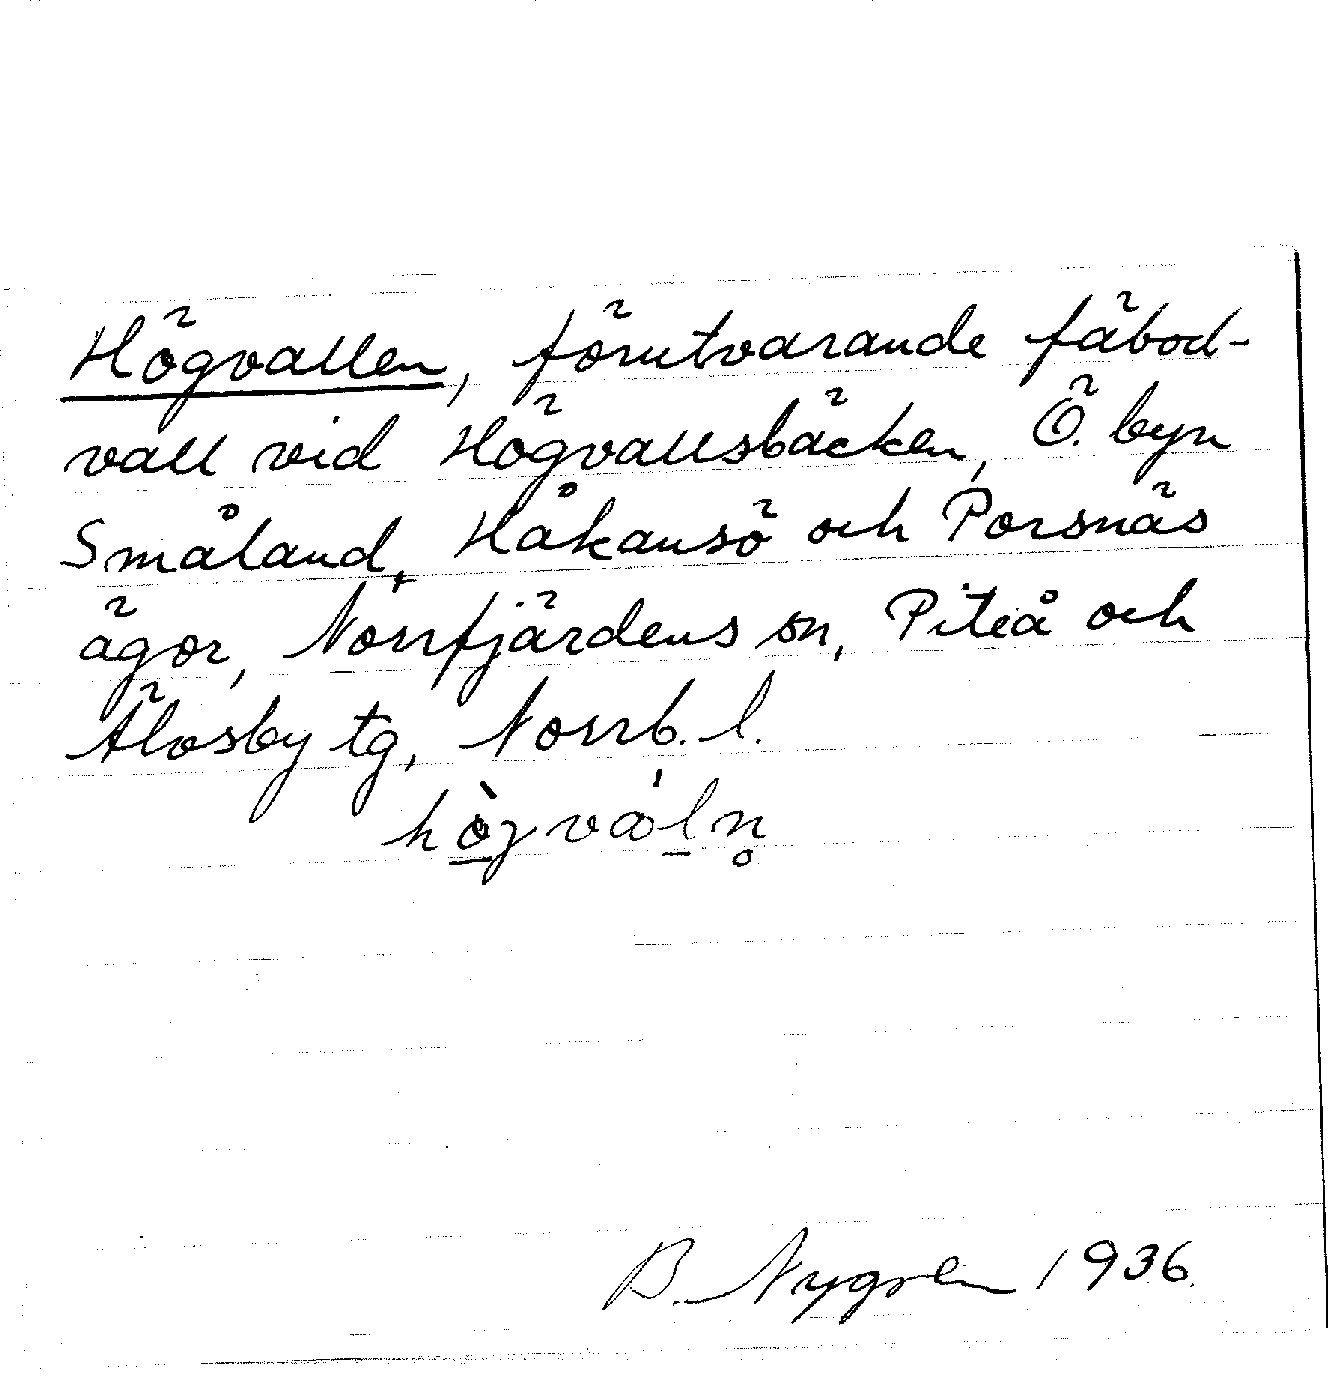 Högvallen, förutvarande fäbod-
vall vid Högvallsbäcken, Ö. byn
Småland, Håkansö och Porsnäs
ägor, Norrfjärdens sn, Piteå och
Älvsby tg, Norrb. l.
B. Nygren 1936